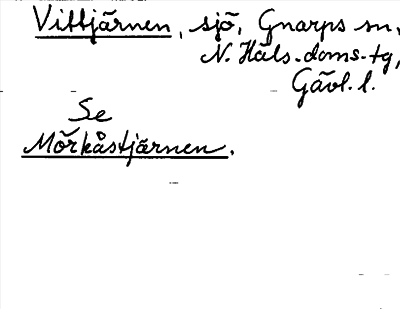 Vittjärnen, sjö, Gnarps sn,
N. Häls. doms-tg,
Gävl. l.
Se
Mörkåstjärnen.